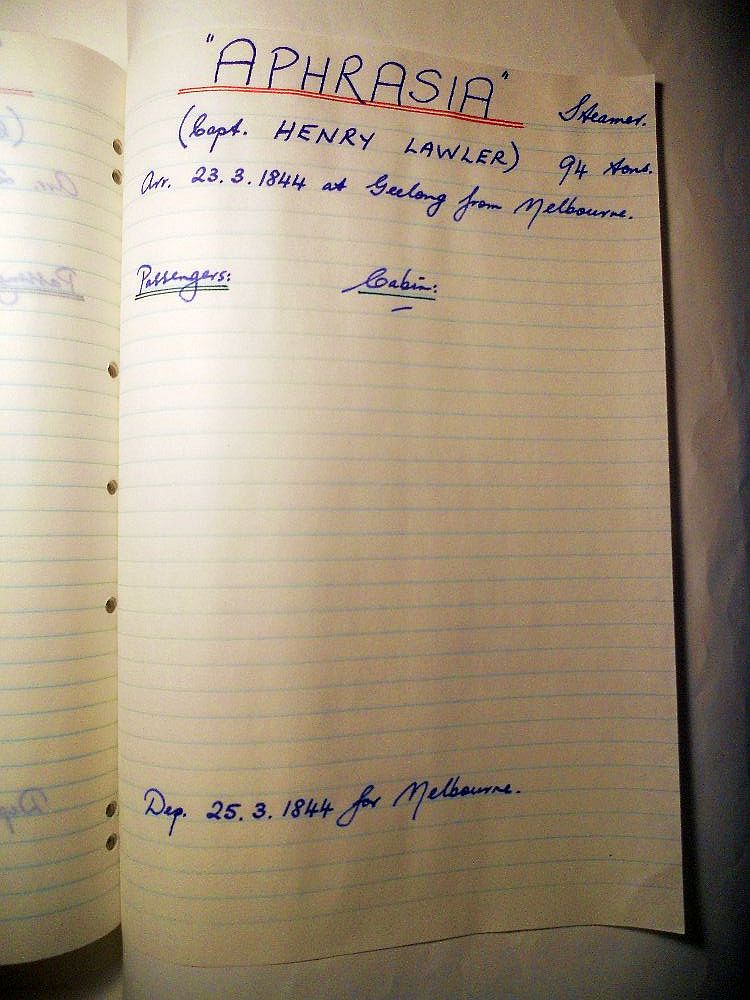 "APHRASIA" Steamer.
(Capt. HENRY LAWLER) 94 tons.
Arr. 23.3.1844 at Geelong from Melbourne.
Passengers: Cabin:
–
Dep. 25.3.1844 for Melbourne.